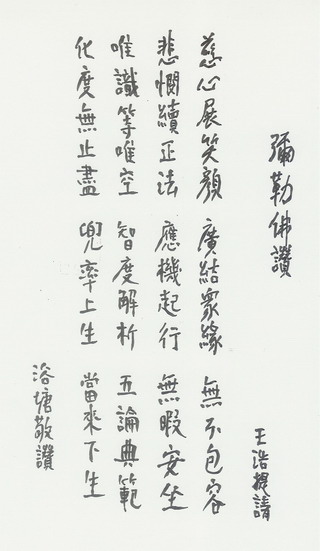 彌勒佛讚
王浩提請
慈心展笑顏 廣結眾緣 無不包容
悲憫續正法 應機起行 無暇安坐
唯識等唯空 智度解析 五論典範
化度無止盡 兜率上生 當來下生
浴塘敬讚